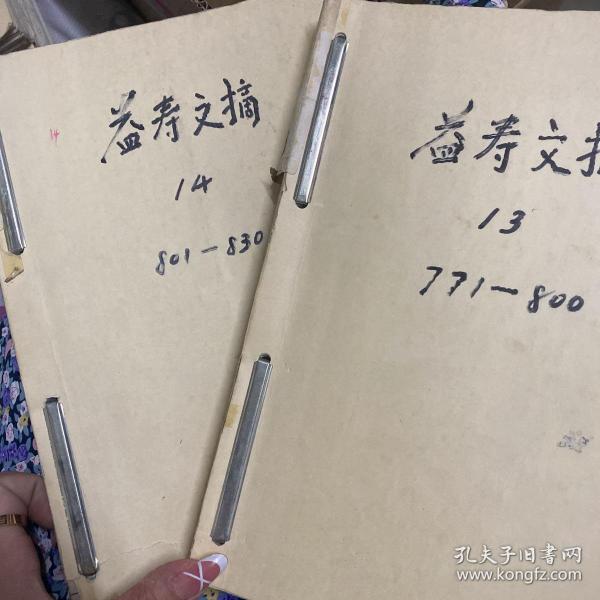 14
益寿文摘
14
801-830
益寿文摘
13
771-800
孔夫子旧书网
www.kongfz.com